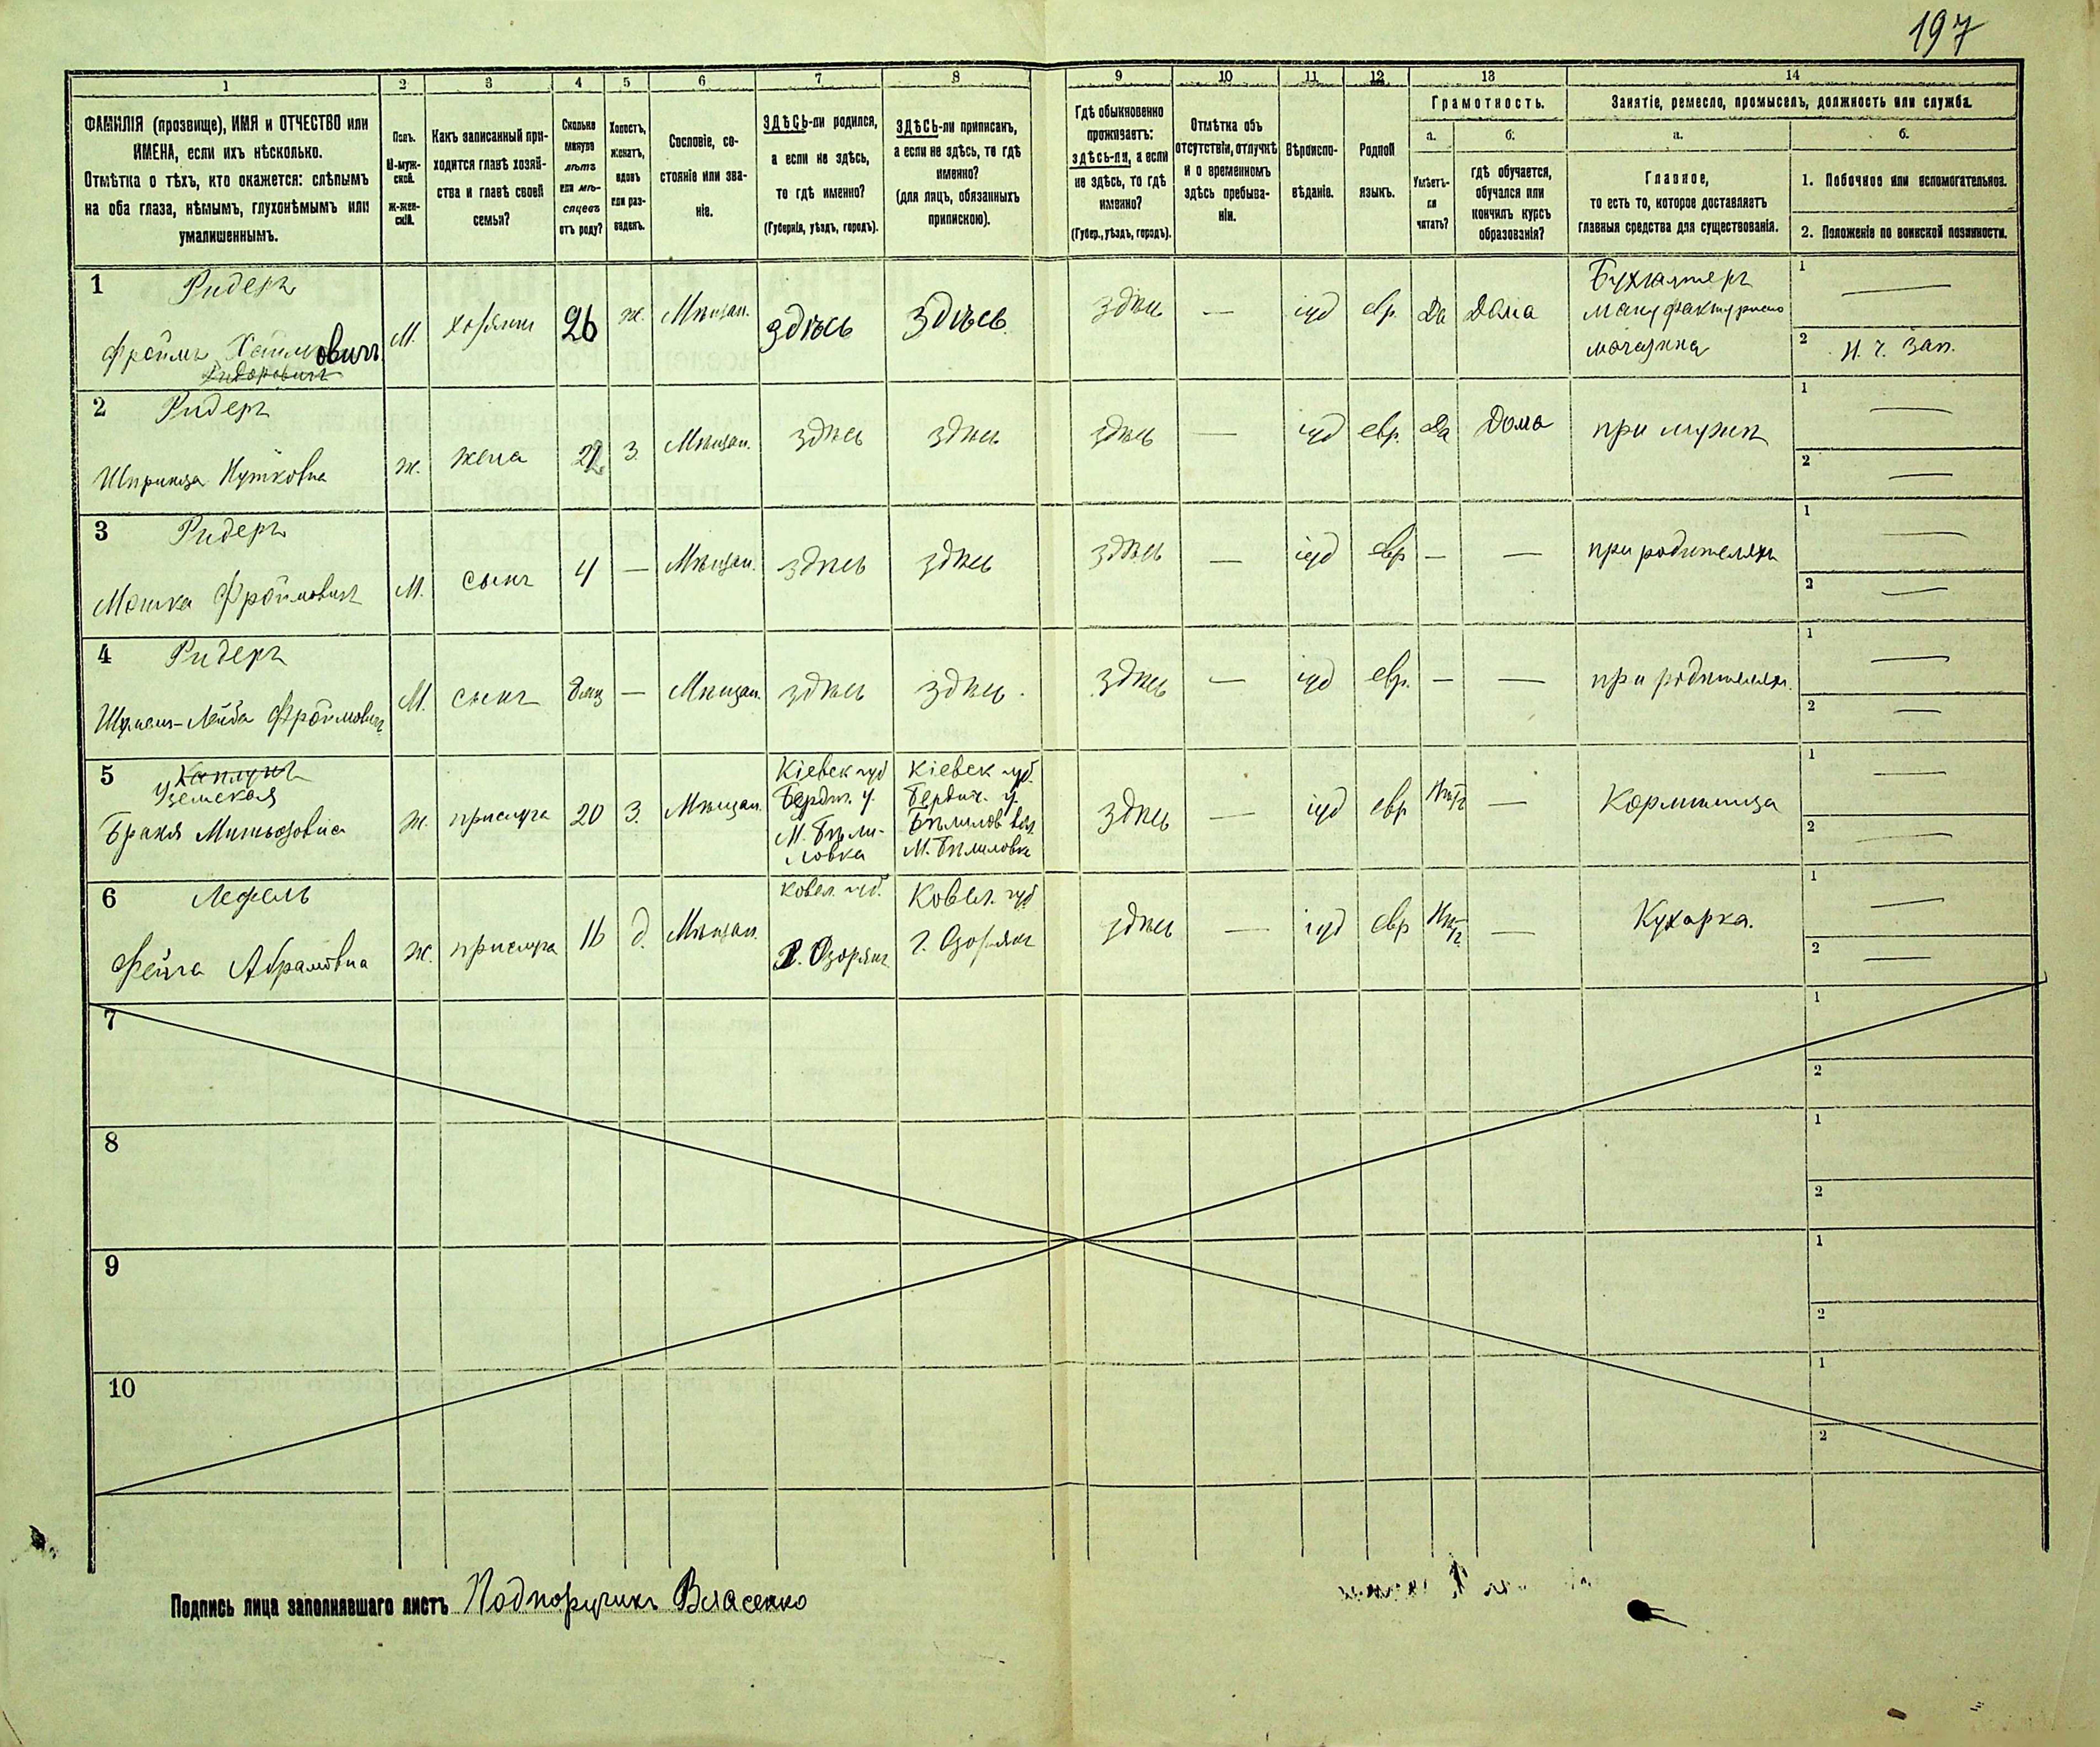 197
1 2 3 4 5 6 7 8 9 10 11 12 13 14
ФАМИЛІЯ (прозвище), ИМЯ и ОТЧЕСТВО или
ИМЕНА, если ихъ нѣсколько.
Отмѣтка о тѣхъ, кто окажется: слѣпымъ
на оба глаза, нѣмымъ, глухонѣмымъ или
умалишеннымъ.
Полъ.
М-муж-
ской.
Ж-жен-
скій.
Какъ записанный при-
ходится главѣ хозяй-
ства и главѣ своей
семьи?
Сколько
минуло
лѣтъ
или мѣ-
сяцевъ
отъ роду?
Холостъ,
женатъ,
вдовъ
или раз-
веденъ.
Сословіе, со-
стояніе или зва-
ніе.
ЗДѢСЬ-ли родился,
а если не здѣсь,
то гдѣ именно?
(Губернія, уѣздъ, городъ).
ЗДѢСЬ-ли приписанъ,
а если не здѣсь, то гдѣ
именно?
(для лицъ, обязанныхъ
припискою).
Гдѣ обыкновенно
проживаетъ:
здѣсь-ли, а если
не здѣсь, то гдѣ
именно?
(Губер., уѣздъ, городъ).
Отмѣтка объ
отсутствіи, отлучкѣ
и о временномъ
здѣсь пребыва-
ніи.
Вѣроиспо-
вѣданіе.
Родной
языкъ.
Грамотность.
а.
Умѣетъ-
ли
читать?
б.
гдѣ обучается,
обучался или
кончилъ курсъ
образованія?
Занятіе, ремесло, промыселъ, должность или служба.
а.
Главное,
то есть то, которое доставляетъ
главныя средства для существованія.
б.
1. Побочное или вспомогательное.
2. Положеніе по воинской повинности.
1 Ридеръ
Фроймъ Хаимовичъ
М. хозяинъ 26 ж. Мѣщан. здѣсь здѣсь здѣсь — іуд евр. Да Дома
Бухгалтеръ
мануфактурнаго
магазина
1 —
2 Н. ч. зап.
2 Ридеръ
Шпринца Нутковна
ж. жена 22 З. Мѣщан. здѣсь здѣсь здѣсь — іуд евр. Да Дома при мужѣ
1 —
2 —
3 Ридеръ
Мошка Фроймовичъ
М. сынъ 4 — Мѣщан. здѣсь здѣсь здѣсь — іуд евр — — при родителяхъ
1 —
2 —
4 Ридеръ
Лейба Фроймовичъ
М. сынъ 8 мц — Мѣщан. здѣсь здѣсь здѣсь — іуд евр. — — при родителях.
1 —
2 —
5 Каплунъ
Узенская
ж. прислуга 20 З. Мѣщан.
Кіевск губ
Бердич. у.
М. Бѣли-
ловка
Кіевск губ.
Бердич. у.
Бѣлилов вол.
М. Бѣлиловка
здѣсь — іуд евр Нѣтъ — Кормилица
1 —
2 —
6 Лефель
Фейга Абрамовна
ж. прислуга 16 д. Мѣщан.
губ.
губ
здѣсь — іуд евр Нѣтъ — Кухарка.
1 —
2 —
7 1
2
8 1
2
9 1
2
10 1
2
Подпись лица заполнявшаго листъ Подпоручикъ Власенко